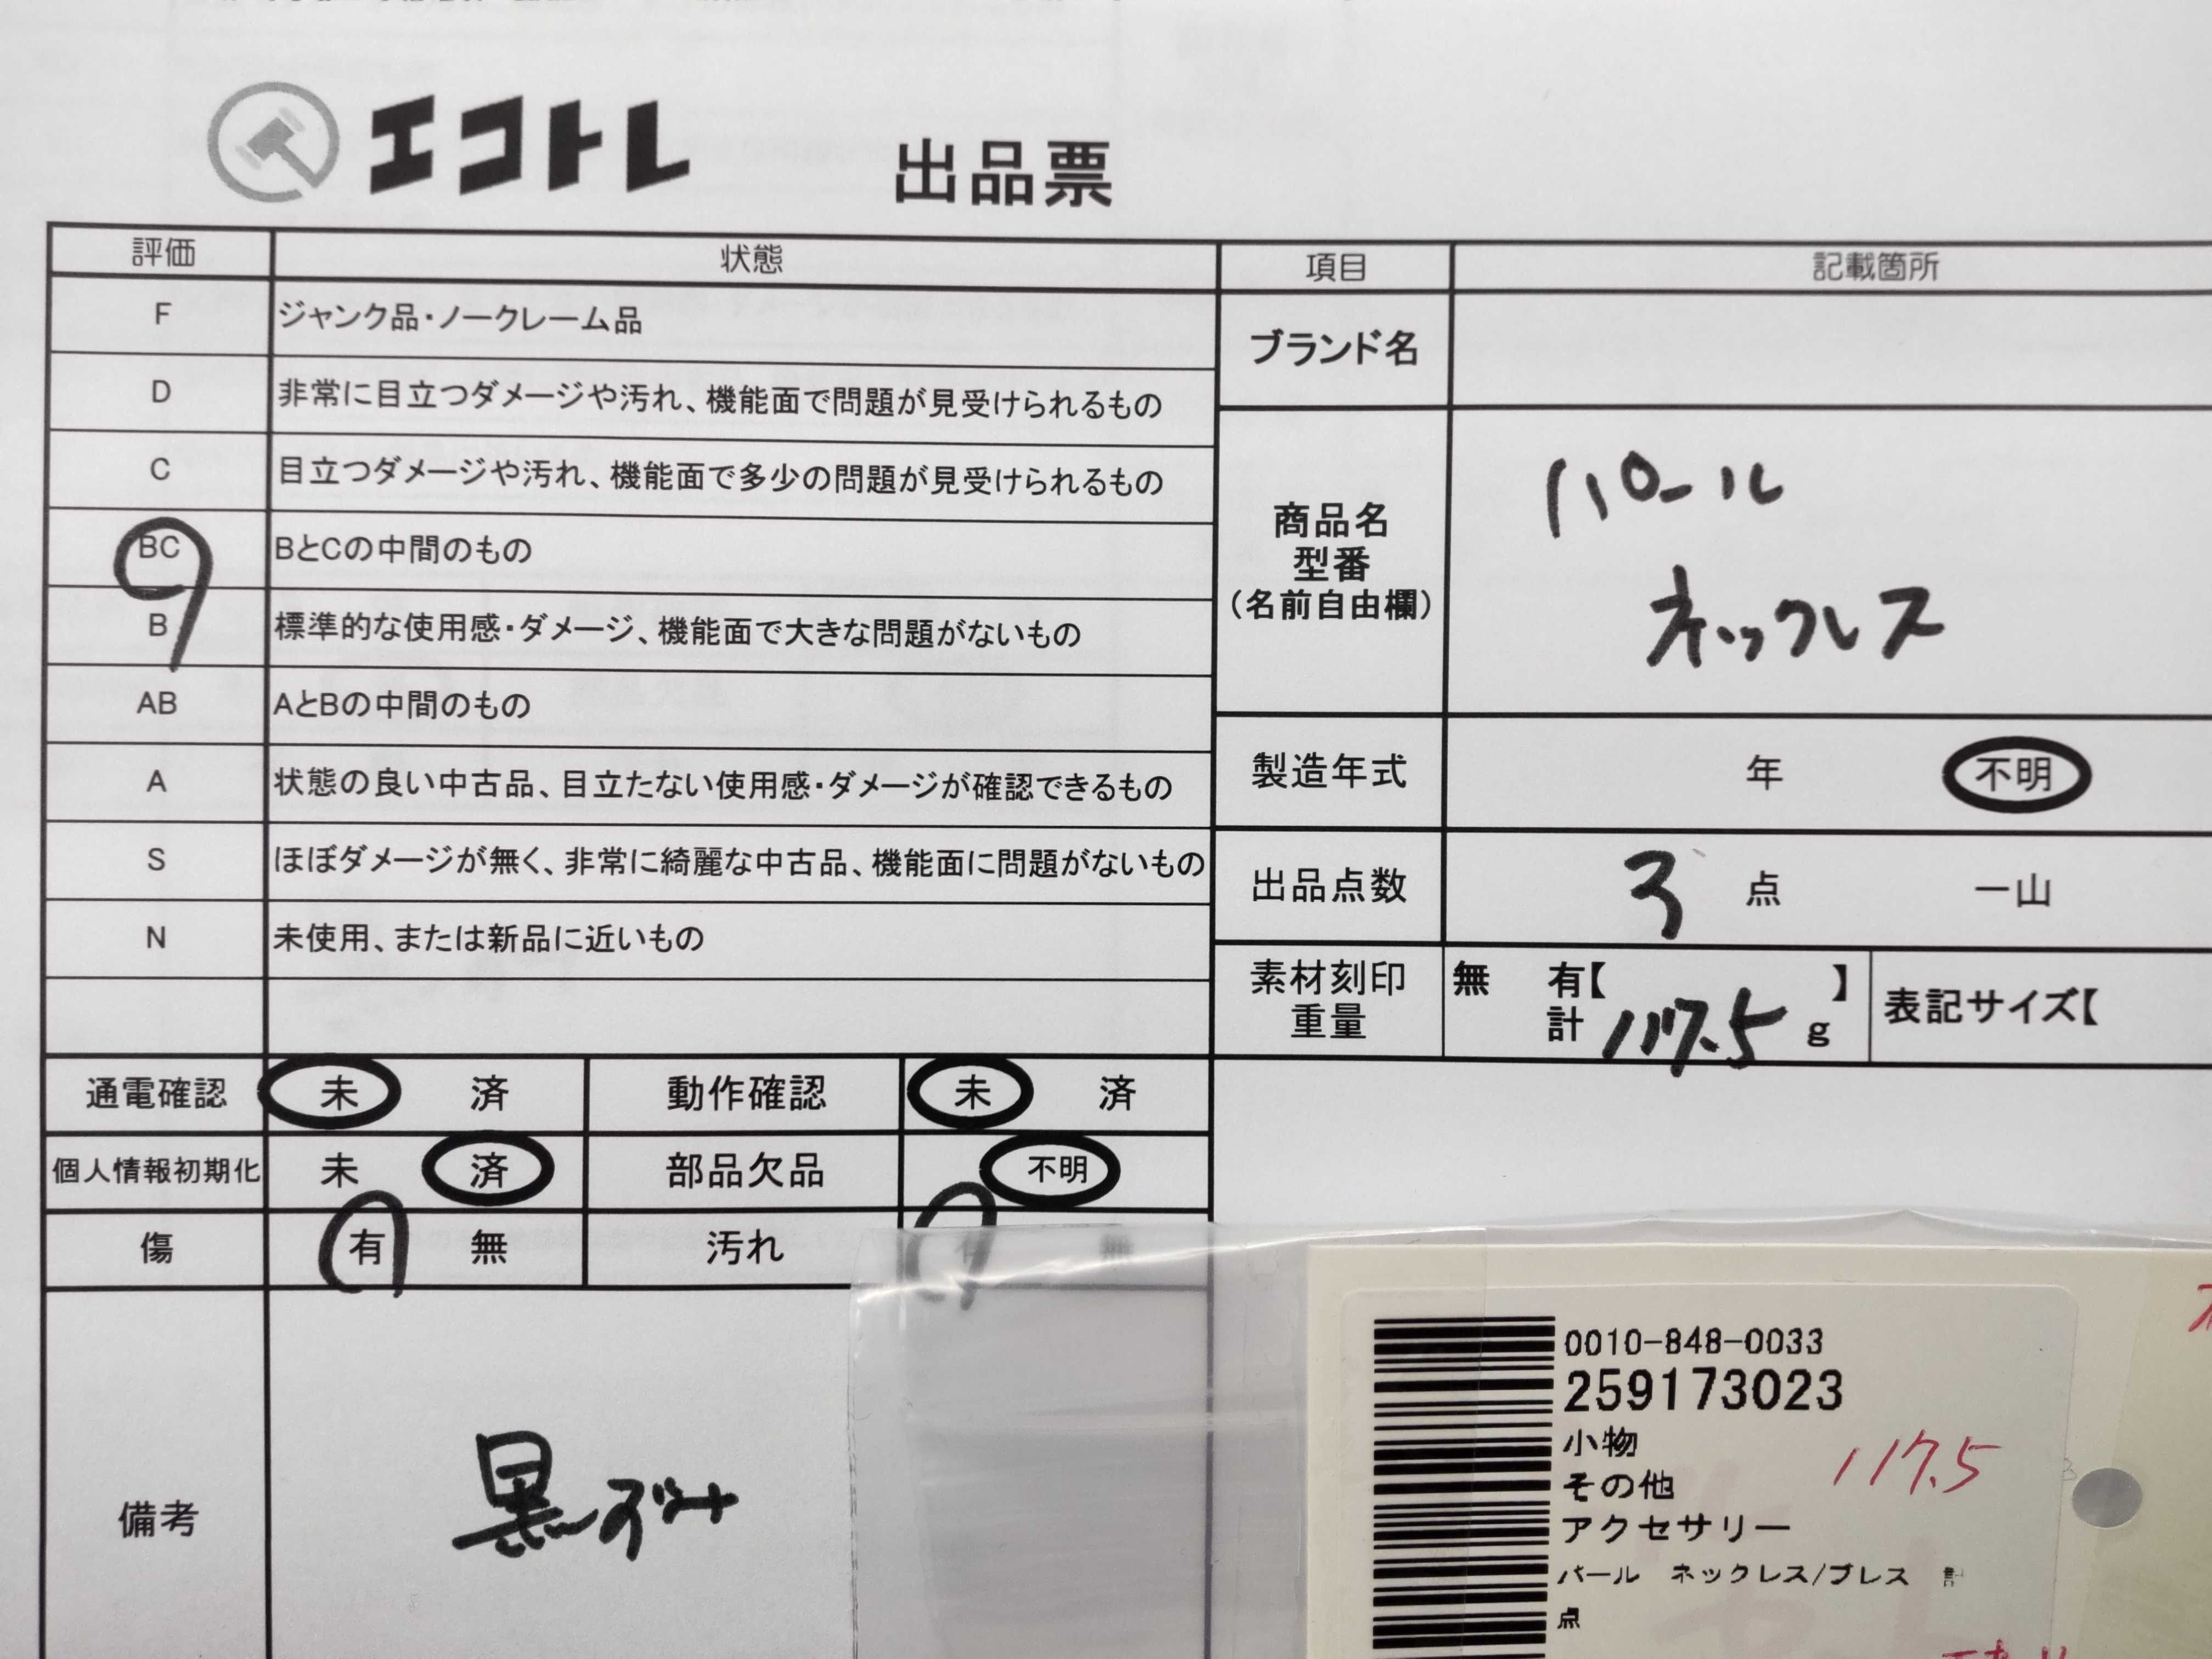 エコトレ 出品票
評価 状態 項目 記載箇所
F ジャンク品・ノークレーム品
D 非常に目立つダメージや汚れ、機能面で問題が見受けられるもの
C 目立つダメージや汚れ、機能面で多少の問題が見受けられるもの
BC BとCの中間のもの
B 標準的な使用感・ダメージ、機能面で大きな問題がないもの
AB AとBの中間のもの
A 状態の良い中古品、目立たない使用感・ダメージが確認できるもの
S ほぼダメージが無く、非常に綺麗な中古品、機能面に問題がないもの
N 未使用、または新品に近いもの
ブランド名
商品名
型番
(名前自由欄)
パール
ネックレス
製造年式 年 不明
出品点数 3 点 一山
素材刻印 無 有【 】
重量 計 117.5 g
表記サイズ【
通電確認 未 済 動作確認 未 済
個人情報初期化 未 済 部品欠品 不明
傷 有 無 汚れ 有 無
備考 黒ずみ
0010-848-0033
259173023
小物
その他
117.5
アクセサリー
パール ネックレス/ブレス 計
点